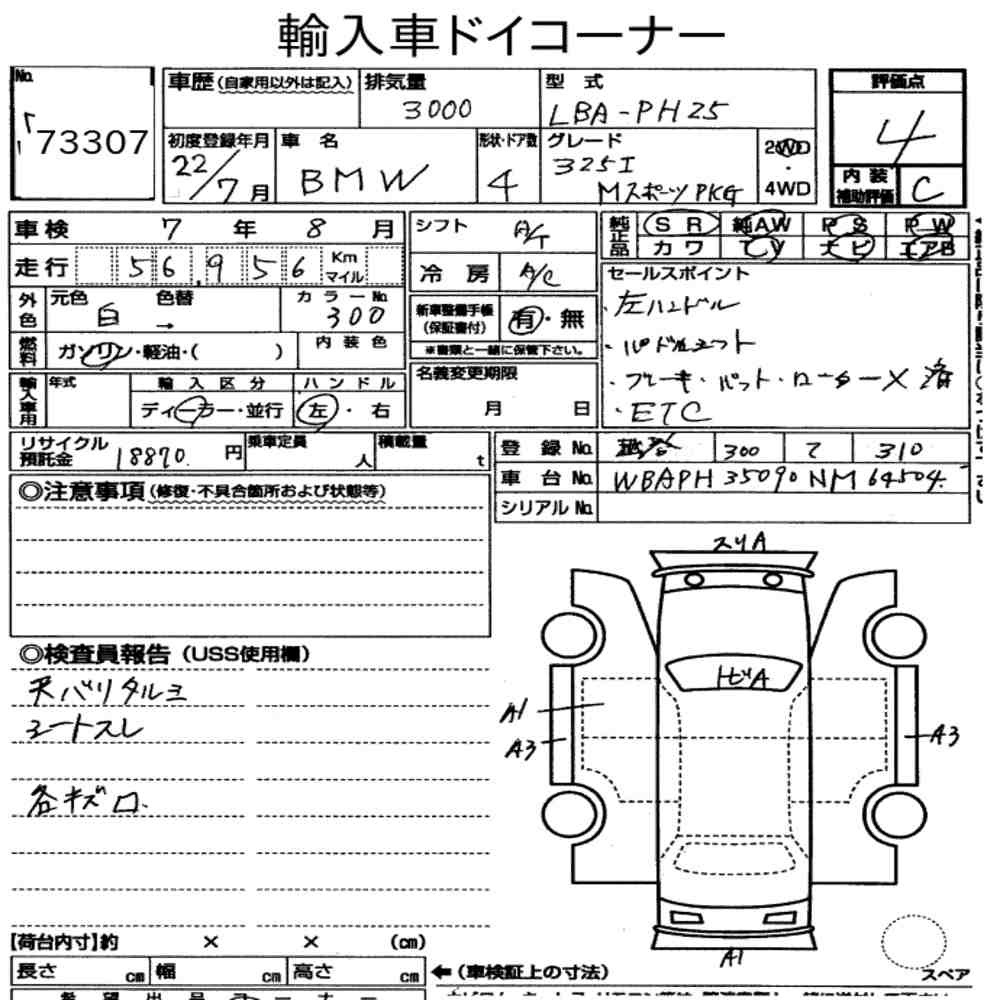 輸入車ドイコーナー
No.
73307
車歴(自家用以外は記入)
排気量
3000
型式
LBA-PH25
評価点
4
初度登録年月
22/7月
車名
BMW
形状・ドア数
4
グレード
325I
Mスポーツ PKG
2WD
・
4WD
内装
補助評価
C
車検 7年 8月
シフト
A/T
純正品
SR 純AW PS PW
カワ TV ナビ エアB
走行 56,956 Km
マイル
冷房
A/C
セールスポイント
・左ハンドル
・パドルシフト
・ブレーキ・パット・ローターX済
・ETC
外色
元色
白
色替
→
カラーNo.
300
新車整備手帳
(保証書付)
有・無
※書類と一緒に保管下さい。
燃料
ガソリン・軽油・( )
内装色
名義変更期限
月 日
輸入車用
年式
輸入区分
ディーラー・並行
ハンドル
左・右
リサイクル
預託金
18870.円
乗車定員
人
積載量
t
登録No. 300 て 310
車台No. WBAPH35090NM64504.
シリアルNo.
◎注意事項(修復・不具合箇所および状態等)
◎検査員報告(USS使用欄)
天バリタルミ
シートスレ
各キズ ロ.
スリA
トビA
A1
A3
A3
A1
【荷台内寸】約 × × (cm)
長さ cm 幅 cm 高さ cm
←(車検証上の寸法)
スペア